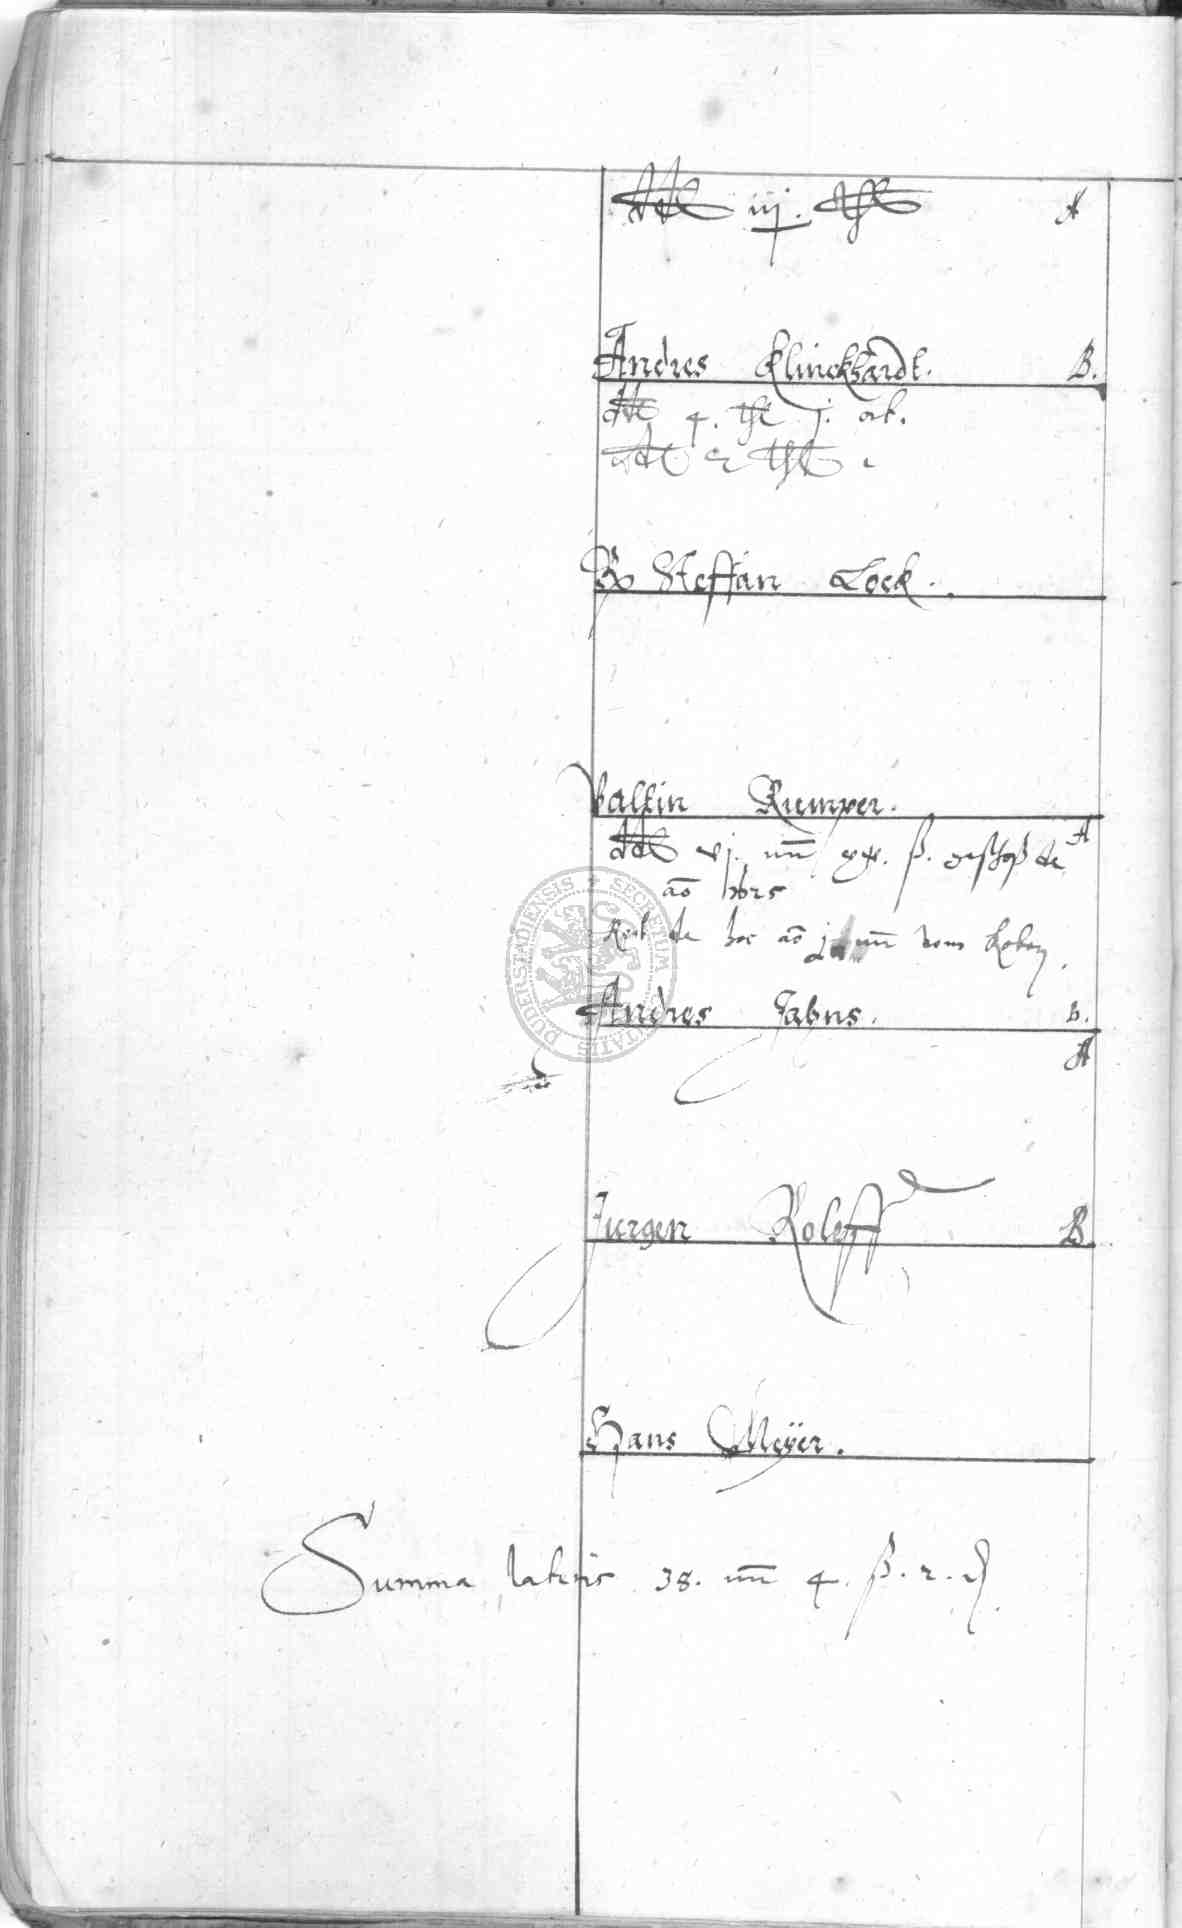 dt iij. thl A
Andres Klinckhardt. B.
dt 4. thl j. ort.
dt 2 thl
Steffan Lock.
Valtin Rumper.
dt vj. mr ß. geschoß de A
ao
Rest de hoc ao j mr vom
Andres Jahns. B.
A
Jurgen Roleff B.
Hans Meÿer.
Summa lateris 38. mr 4. ß. 2. d
SECRETUM CIVITATIS DUDERSTADIENSIS